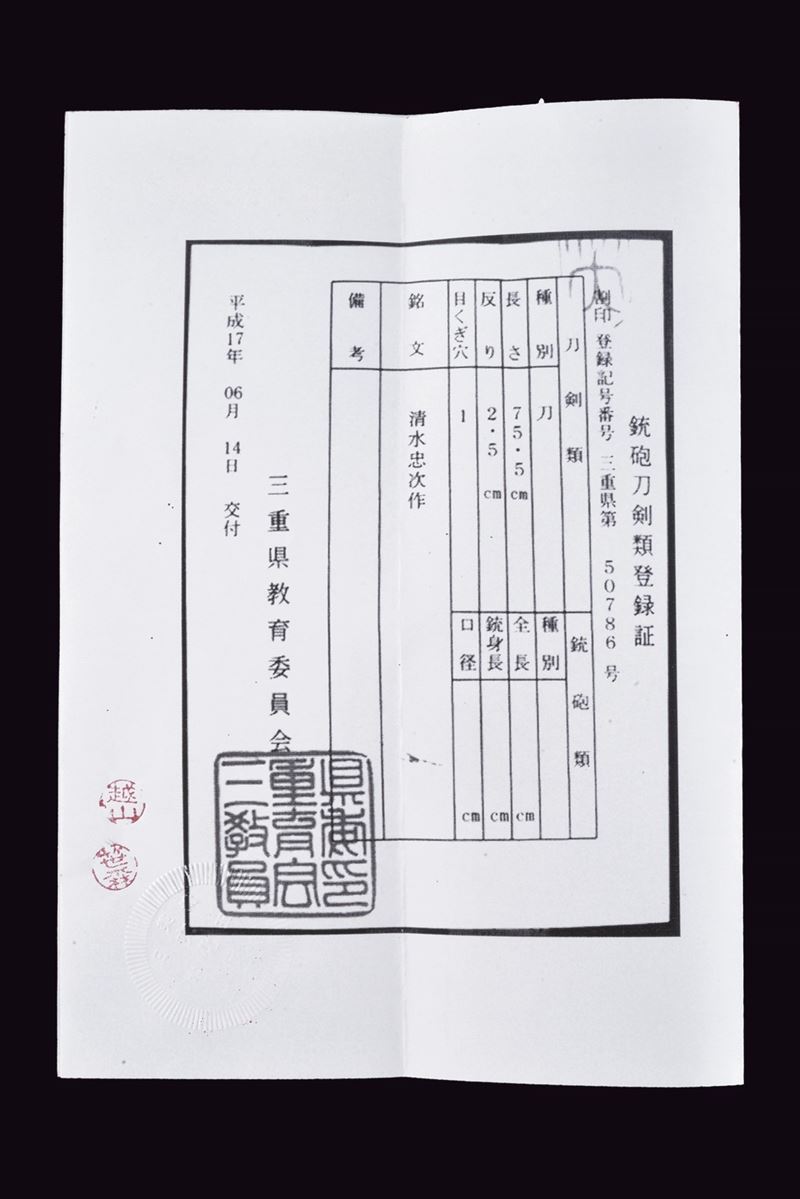 銃砲刀剣類登録証
割印 登録記号番号 三重県第 50786 号
刀剣類
銃砲類
種別
刀
種別
長さ
75.5 cm
全長
cm
反り
2.5 cm
銃身長
cm
目くぎ穴
1
口径
cm
銘文
清水忠次作
備考
三重県教育委員会
平成17年 06月 14日 交付
越山